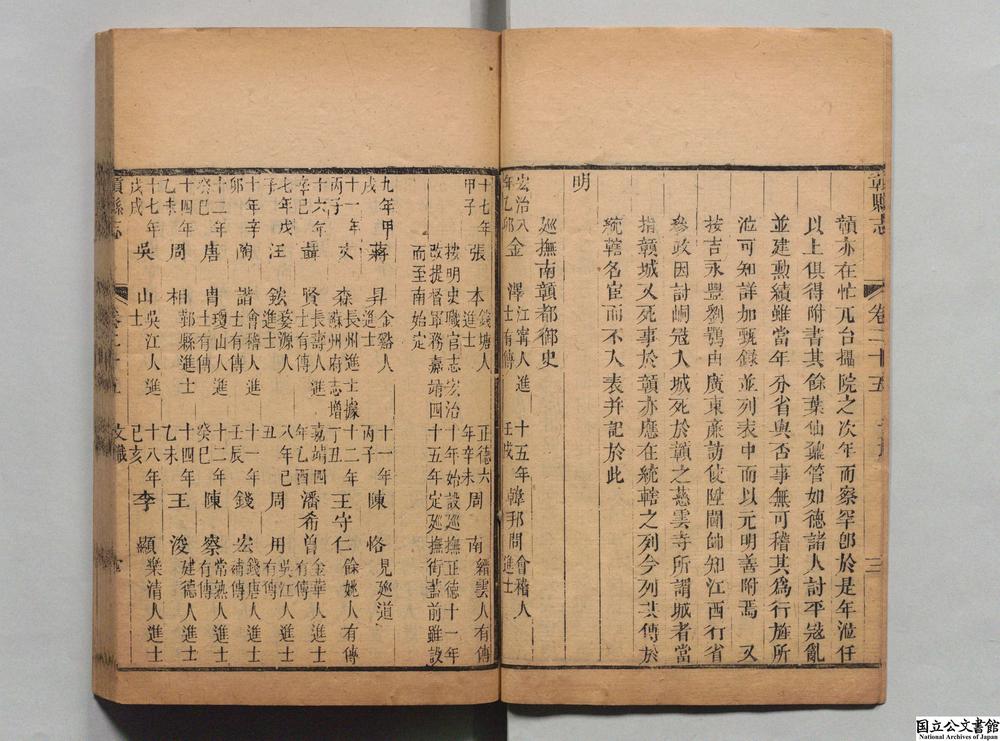 贛縣志 卷二十五 三
贛亦在忙兀台攝院之次年而察罕郎於是年涖任
以上俱得附書其餘葉仙鼐管如德諸人討平冦亂
並建勲績雖當年分省與否事無可稽其爲行旌所
涖可知詳加甄録並列表中而以元明善附焉 又
按吉永豐劉鶚由廣東廉訪使陞閫帥知江西行省
參政因討峒冦入城死於贛之慈雲寺所謂城者當
指贛城又死事於贛亦應在統轄之列今列其傳於
統轄名宦而不入表并記於此
明
廵撫南贛都御史
宏治八年乙邜 金 澤 江寧人進士有傳 十五年壬戌 韓邦問 會稽人進士
十七年甲子 張 本 錢塘人進士 正德六年辛未 周 南 縉雲人有傳
按明史職官志宏治十年始設廵撫正德十一年
改提督軍務嘉靖四十五年定廵撫銜葢前雖設
而至南始定
九年甲戌 蔣 昇 進士 十一年丙子 陳 恪 見廵道
十一年丙子 文 森 長洲進士據蘇州府志增 十二年丁丑 王守仁 餘姚人有傳
十六年辛巳 聶 賢 長壽人進士有傳 嘉靖四年乙酉 潘希曾 金華人進士有傳
七年戊子 汪 鋐 婺源人進士 八年己丑 周 用 吳江人進士有傳
十年辛卯 陶 諧 會稽人進士有傳 十一年壬辰 錢 宏 錢唐人進士
十二年癸巳 唐 冑 瓊山人進士有傳 十二年癸巳 陳 察 常熟人進士有傳
十四年乙未 周 相 鄞縣進士 十四年乙未 王 浚 建德人進士
十七年戊戌 吳 山 吳江人進士 十八年己亥 李 顯 樂清人進士
贛縣志 卷二十五 文職
国立公文書館
National Archives of Japan